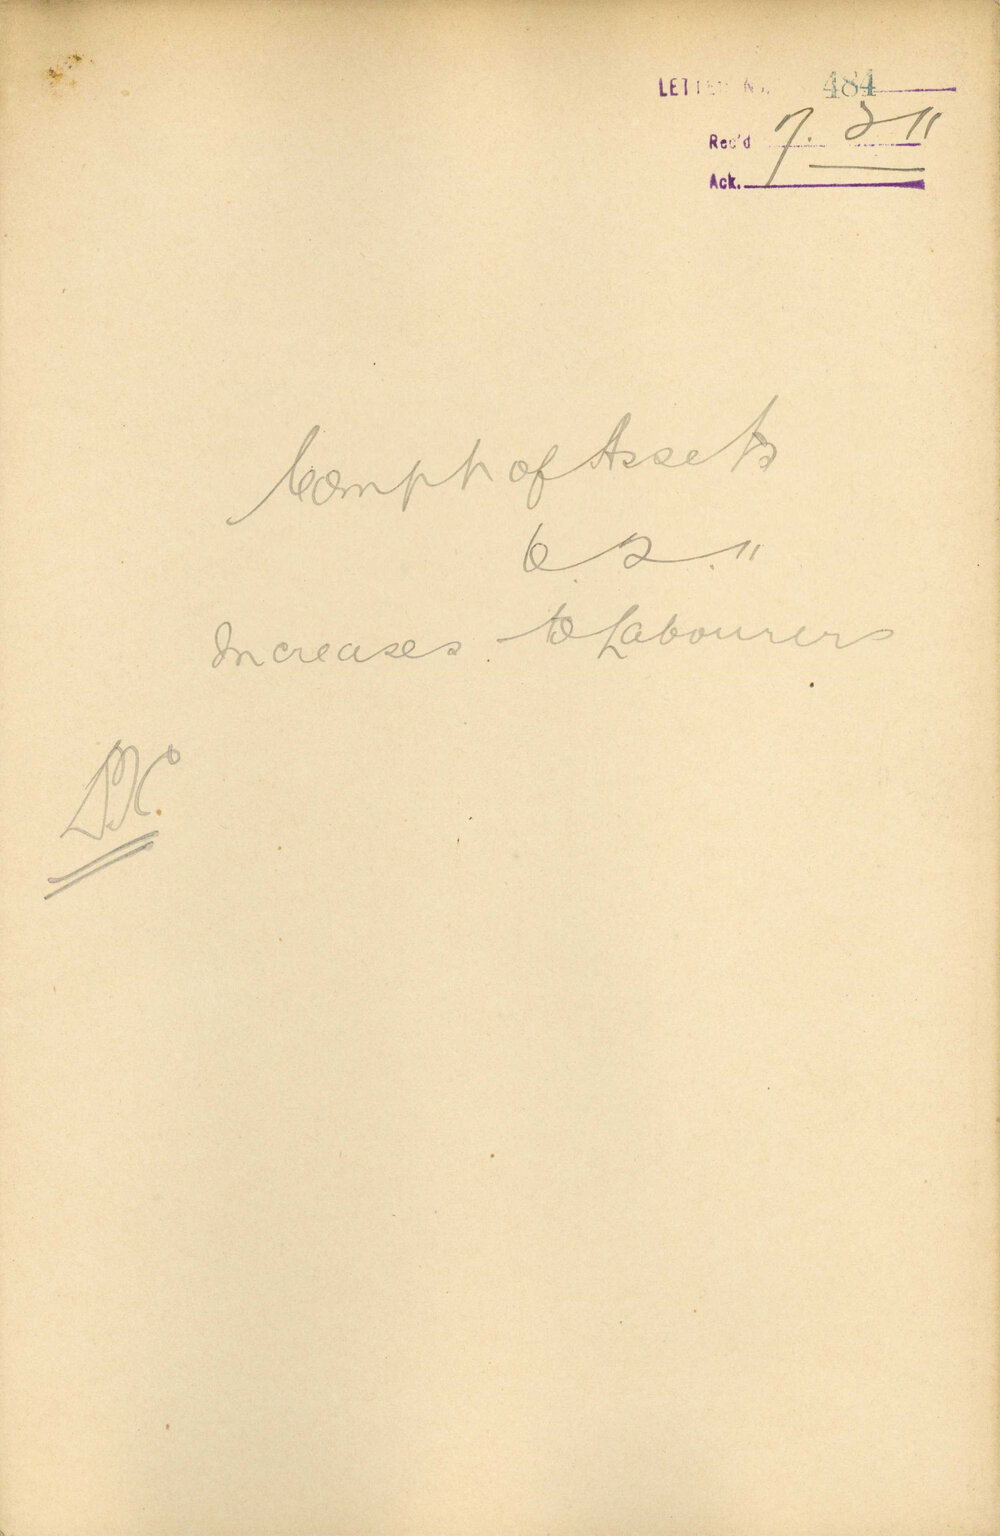 LETTER No. 484
Rec'd 7. 2 11
Ack.
Comptr of Assets
6. 2. 11
Increases to Labourers